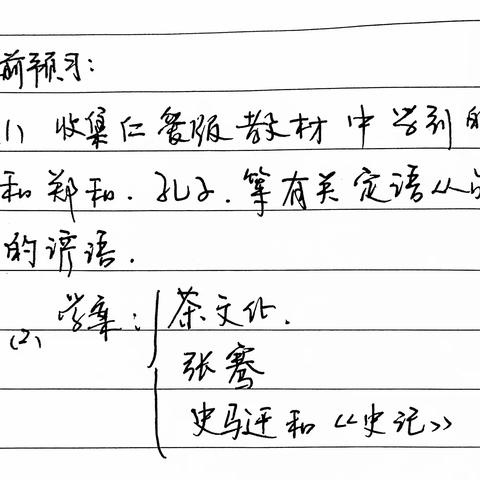 前预习:
(1) 收集仁爱版教材中学到的
和郑和.孔子.等有关定语从
的谚语.
(2) 学案: 茶文化.
张骞
史马迁和《史记》